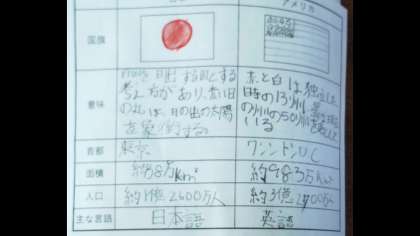 アメリカ
国旗
意味
する
考え方があり、赤い日
の丸は、日の出の太陽
を象徴する。
赤と白は独立した
時の13州
の州の50州を
いる
首都
東京
ワシントンDC
面積
約38万km²
約983万km²
人口
約1億2600万人
約3億2700万人
主な言語
日本語
英語